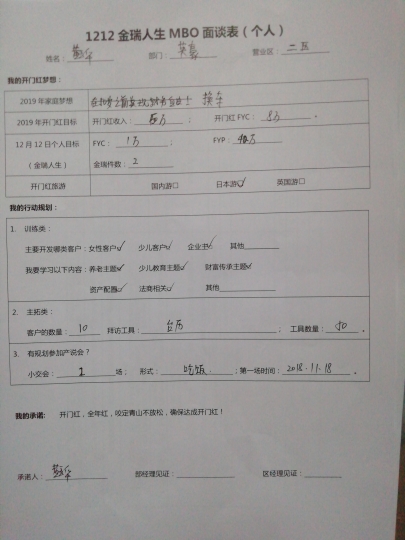 1212 金瑞人生 MBO 面谈表（个人）
姓名： 部门： 英 营业区： 二区
我的开门红梦想：
2019 年家庭梦想 换车
2019 年开门红目标 开门红收入： 5万 ； 开门红 FYC： 8万 。
12 月 12 日个人目标 FYC： 1万 ； FYP： 万
（金瑞人生） 金瑞件数： 2
开门红旅游 国内游□ 日本游☑ 英国游□
我的行动规划：
1. 训练类：
主要开发哪类客户：女性客户☑ 少儿客户☑ 企业主☑ 其他
我要学习以下内容：养老主题☑ 少儿教育主题☑ 财富传承主题☑
资产配置☑ 法商相关☑ 其他
2. 主拓类：
客户的数量： 10 拜访工具： 台历 ； 工具数量： 50 。
3. 有规划参加产说会？
小交会： 1 场； 形式： 吃饭 ；第一场时间： 2018.11.18 。
我的承诺： 开门红，全年红，咬定青山不放松，确保达成开门红！
承诺人： 部经理见证： 区经理见证：